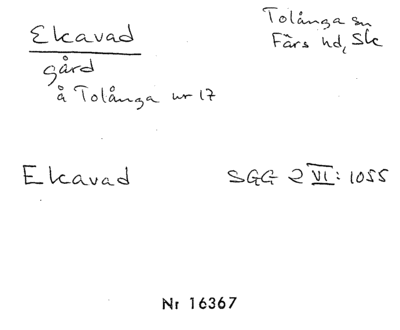 Ekavad
Tolånga sn
Färs hd, Sk
gård
å Tolånga nr 17
Ekavad
SGG 2 VI: 1055
Nr 16367